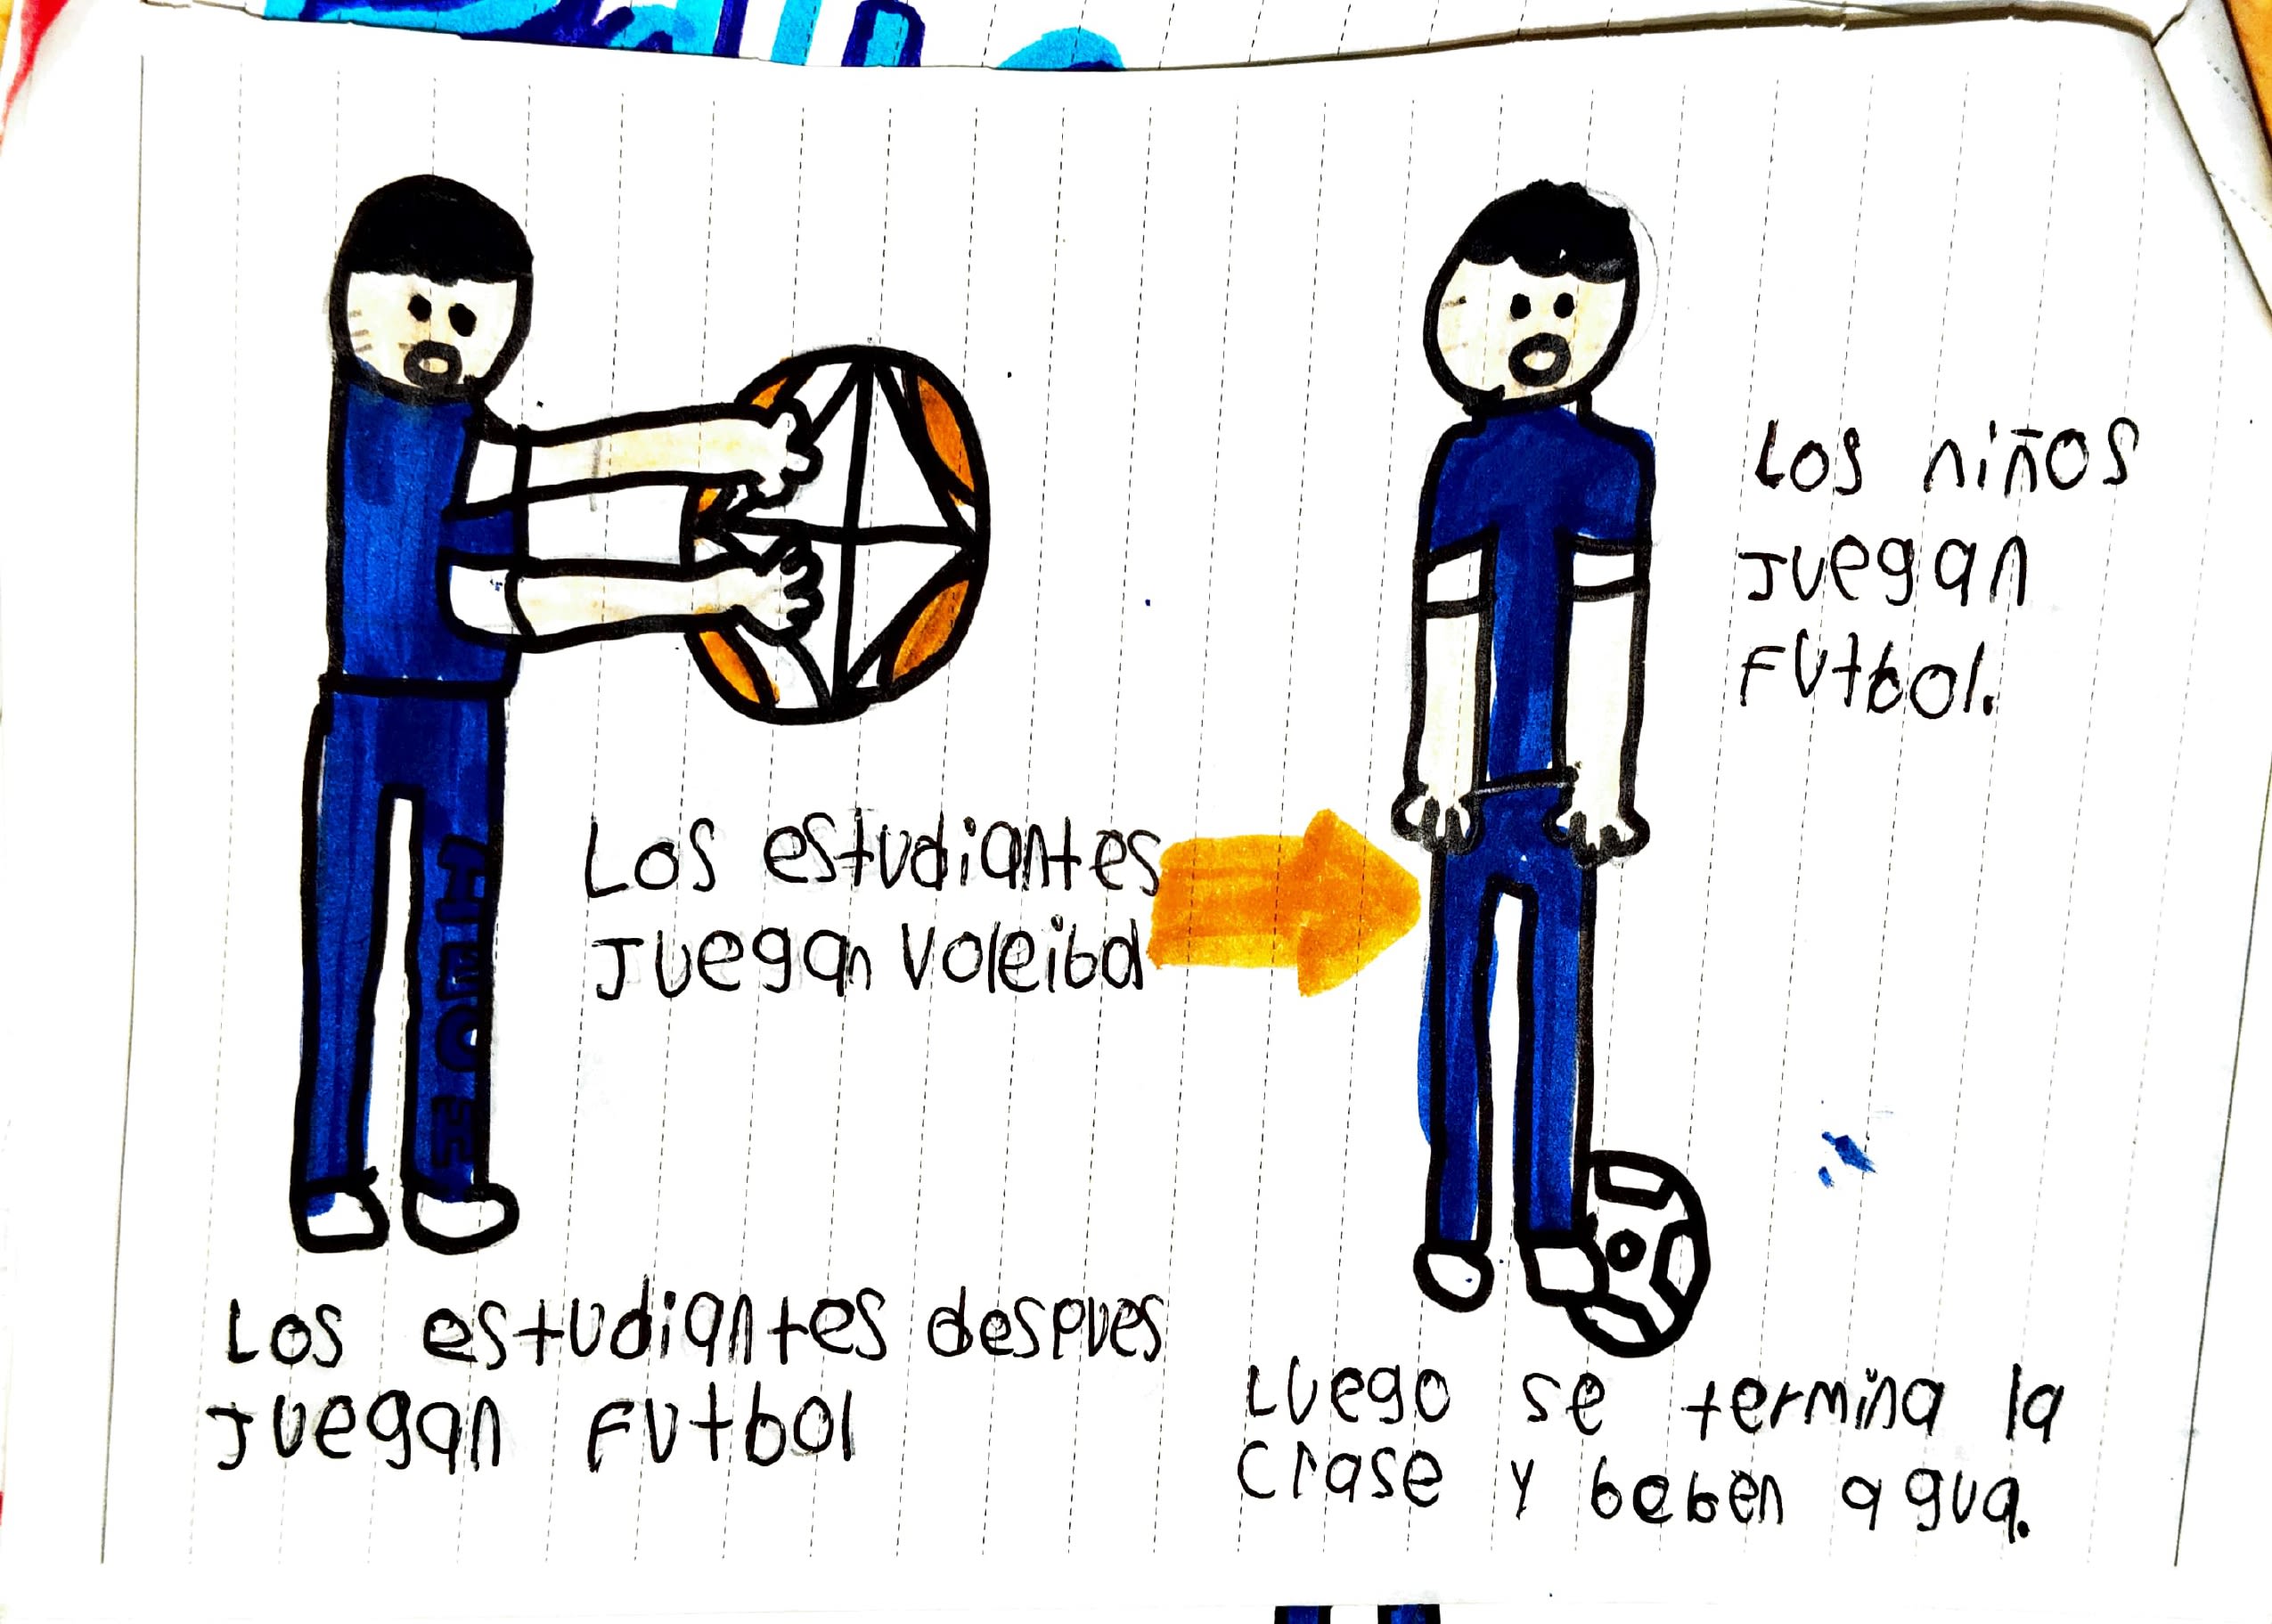 Los estudiantes
Juegan Voleibol
Los niños
Juegan
Futbol.
Los estudiantes despues
Juegan Futbol
Luego se termina la
Clase y beben agua.